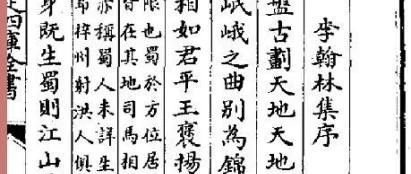 李翰林集序
盤古劃天地天地
岷峨之曲別為錦
相如君平王襃揚
限也蜀於方位居
皆在其地司馬相
亦稱蜀人未詳生
郎梓州射洪人俱
身既生蜀則江山
四庫全書